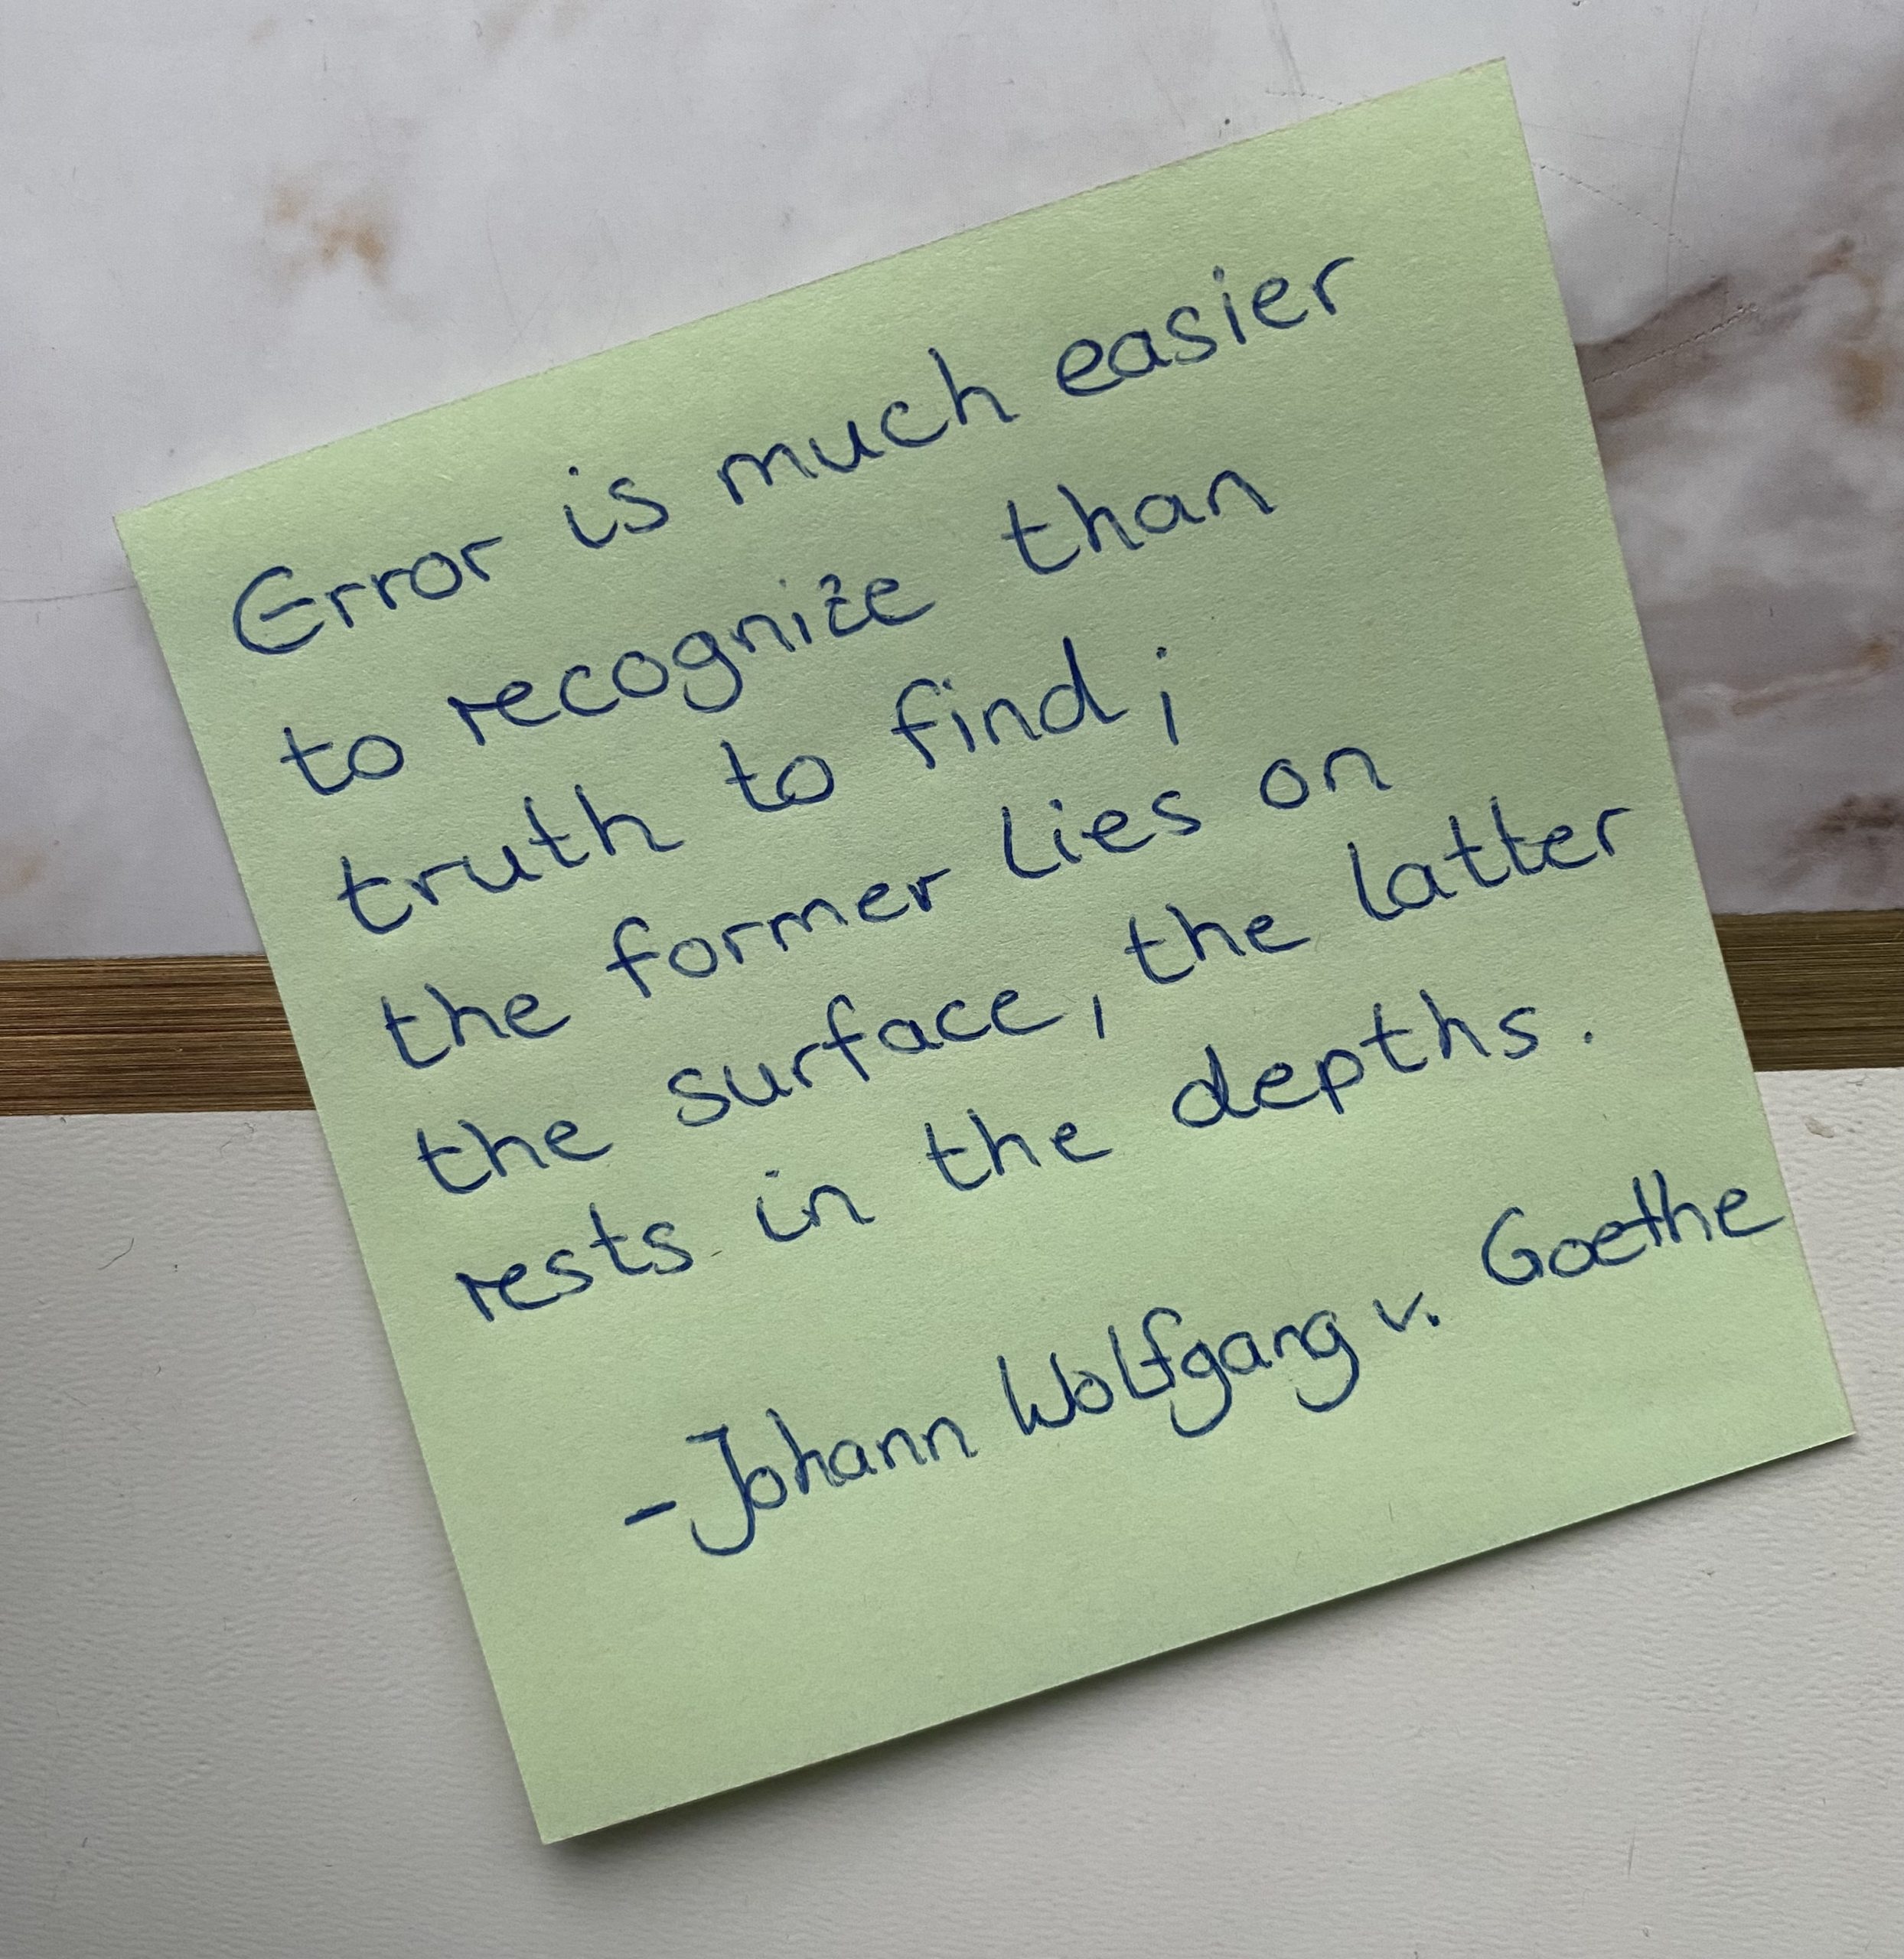 Error is much easier
to recognize than
truth to find;
the former lies on
the surface, the latter
rests in the depths.
-Johann Wolfgang v. Goethe